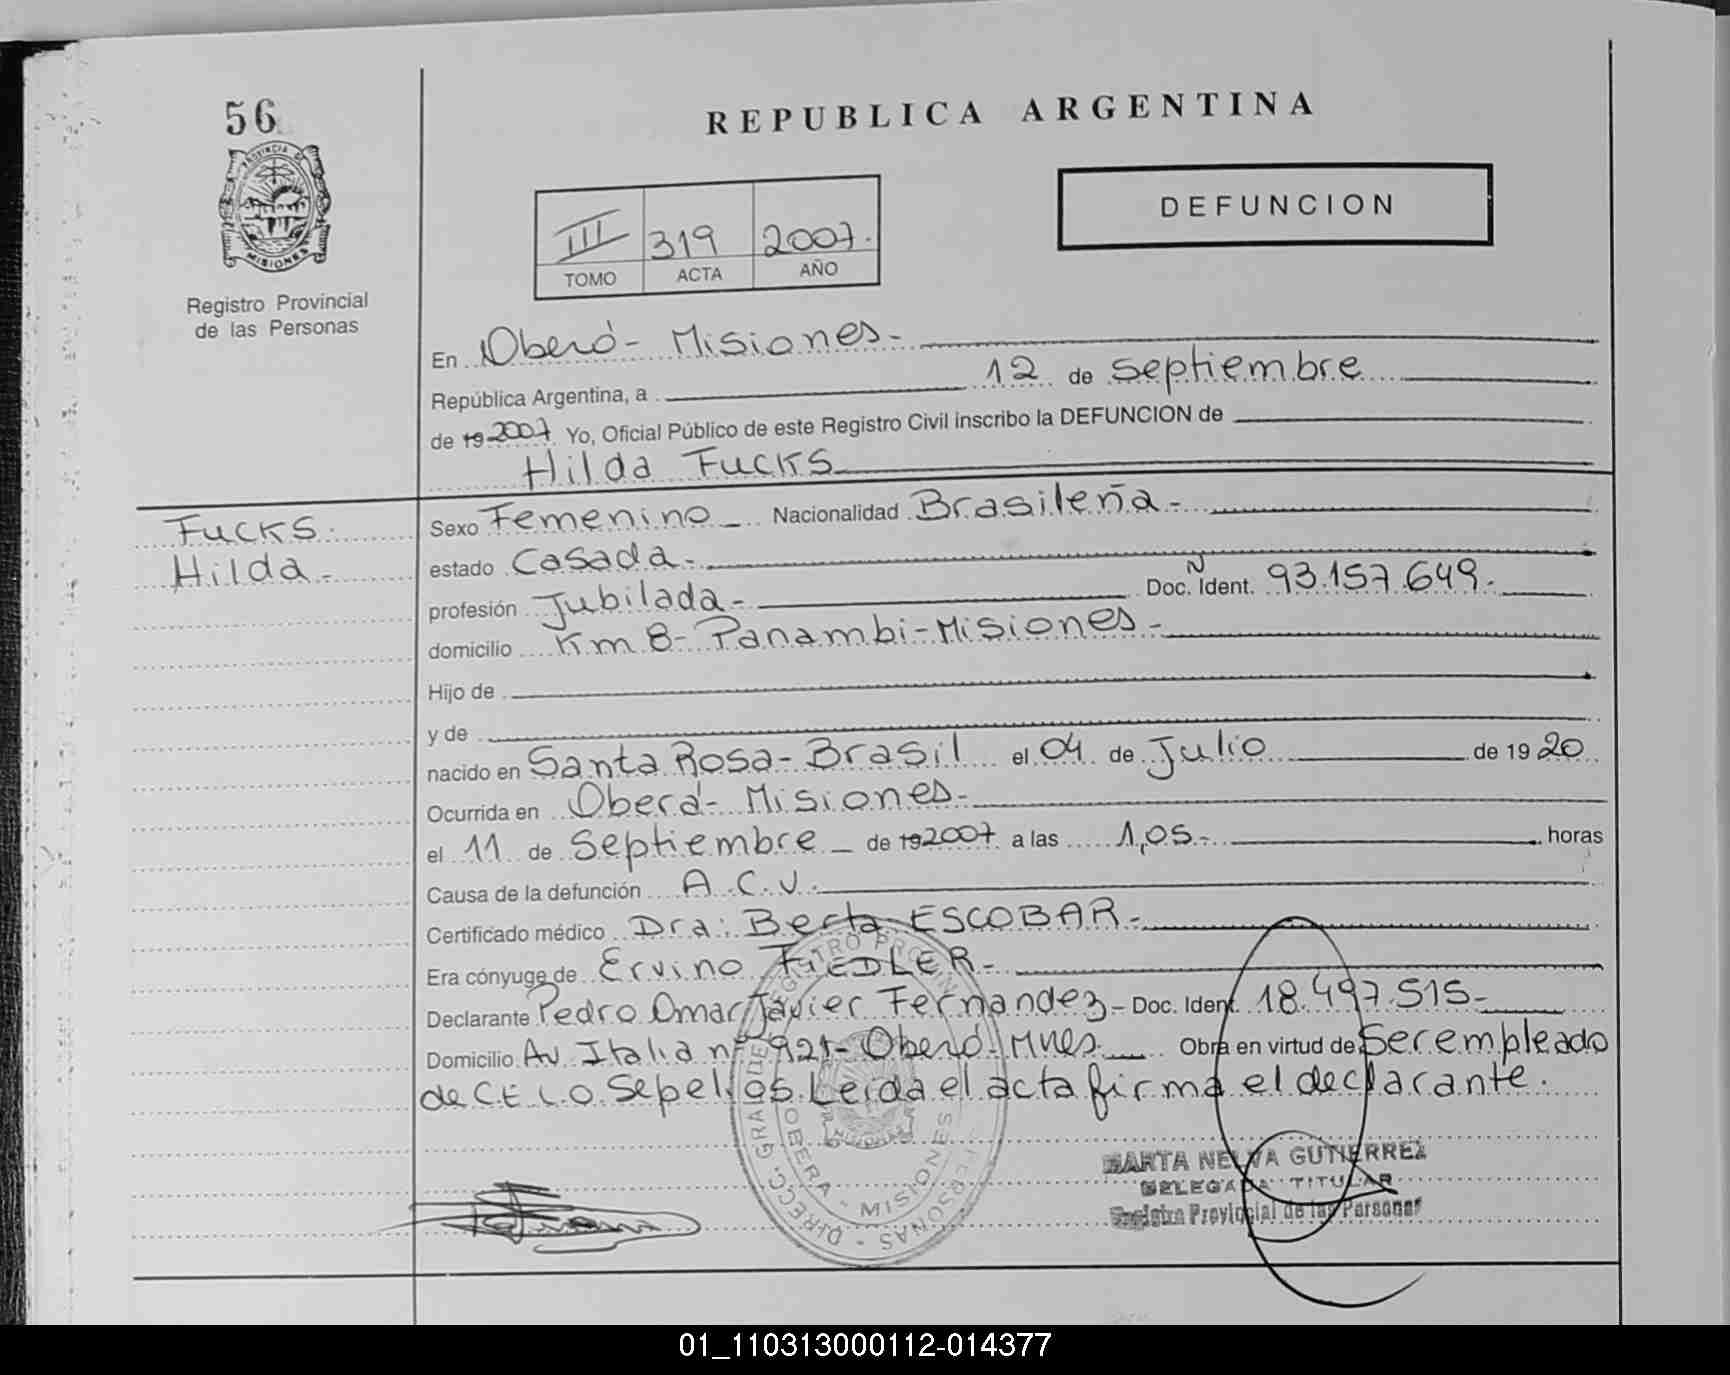 56
PROVINCIA DE
MISIONES
Registro Provincial
de las Personas
REPUBLICA ARGENTINA
III 319 2007.
TOMO ACTA AÑO
DEFUNCION
En Oberá - Misiones -
República Argentina, a 12 de septiembre
de 19 2007 Yo, Oficial Público de este Registro Civil inscribo la DEFUNCION de
Hilda Fucks
Fucks.
Hilda -
Sexo Femenino Nacionalidad Brasileña -
estado Casada -
profesión Jubilada - Doc. N Ident. 93.157.649.
domicilio Km 8 - Panambi - Misiones -
Hijo de
y de
nacido en Santa Rosa - Brasil el 04 de Julio de 19 20
Ocurrida en Oberá - Misiones -
el 11 de Septiembre de 19 2007 a las 1,05 - horas
Causa de la defunción A.C.V.
Certificado médico Dra: Berta ESCOBAR -
Era cónyuge de Ervino FIEDLER -
Declarante Pedro Omar Javier Fernandez - Doc. Ident. 18.497.515 -
Domicilio Av. Italia nº 921 - Oberá - Mnes. Obra en virtud de Ser empleado
de C.E.L.O. Sepelios. Leida el acta firma el declarante.
OBERA - MISIONES
MARTA NELVA GUTIERREZ
DELEGADA TITULAR
Registro Provincial de las Personas
01_110313000112-014377